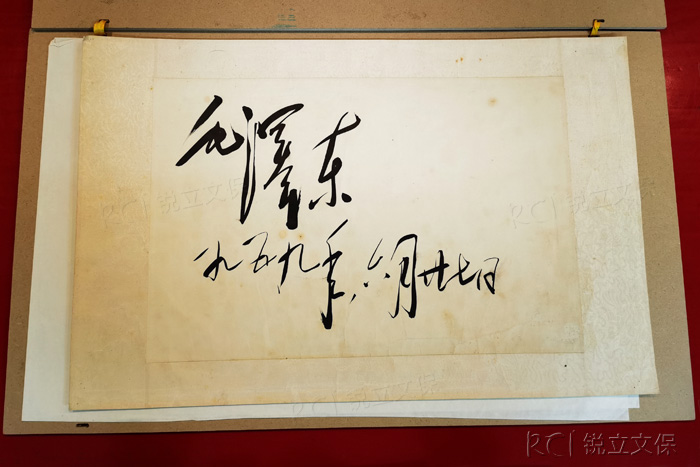 毛澤东
一九五九年，六月廿七日
RCI 锐立文保
RCI 锐立文保
RCI 锐立文保
RCI 锐立文保